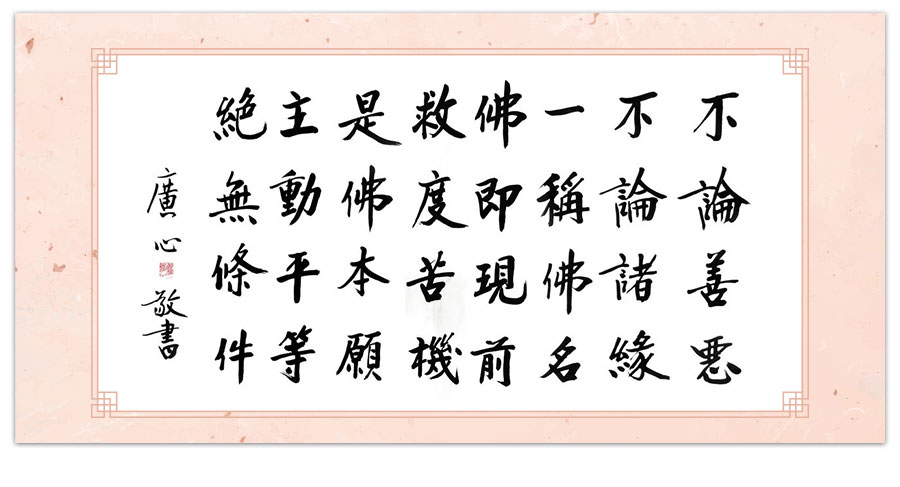 不論善惡
不論諸緣
一稱佛名
佛即現前
救度苦機
是佛本願
主動平等
絕無條件
廣心敬書